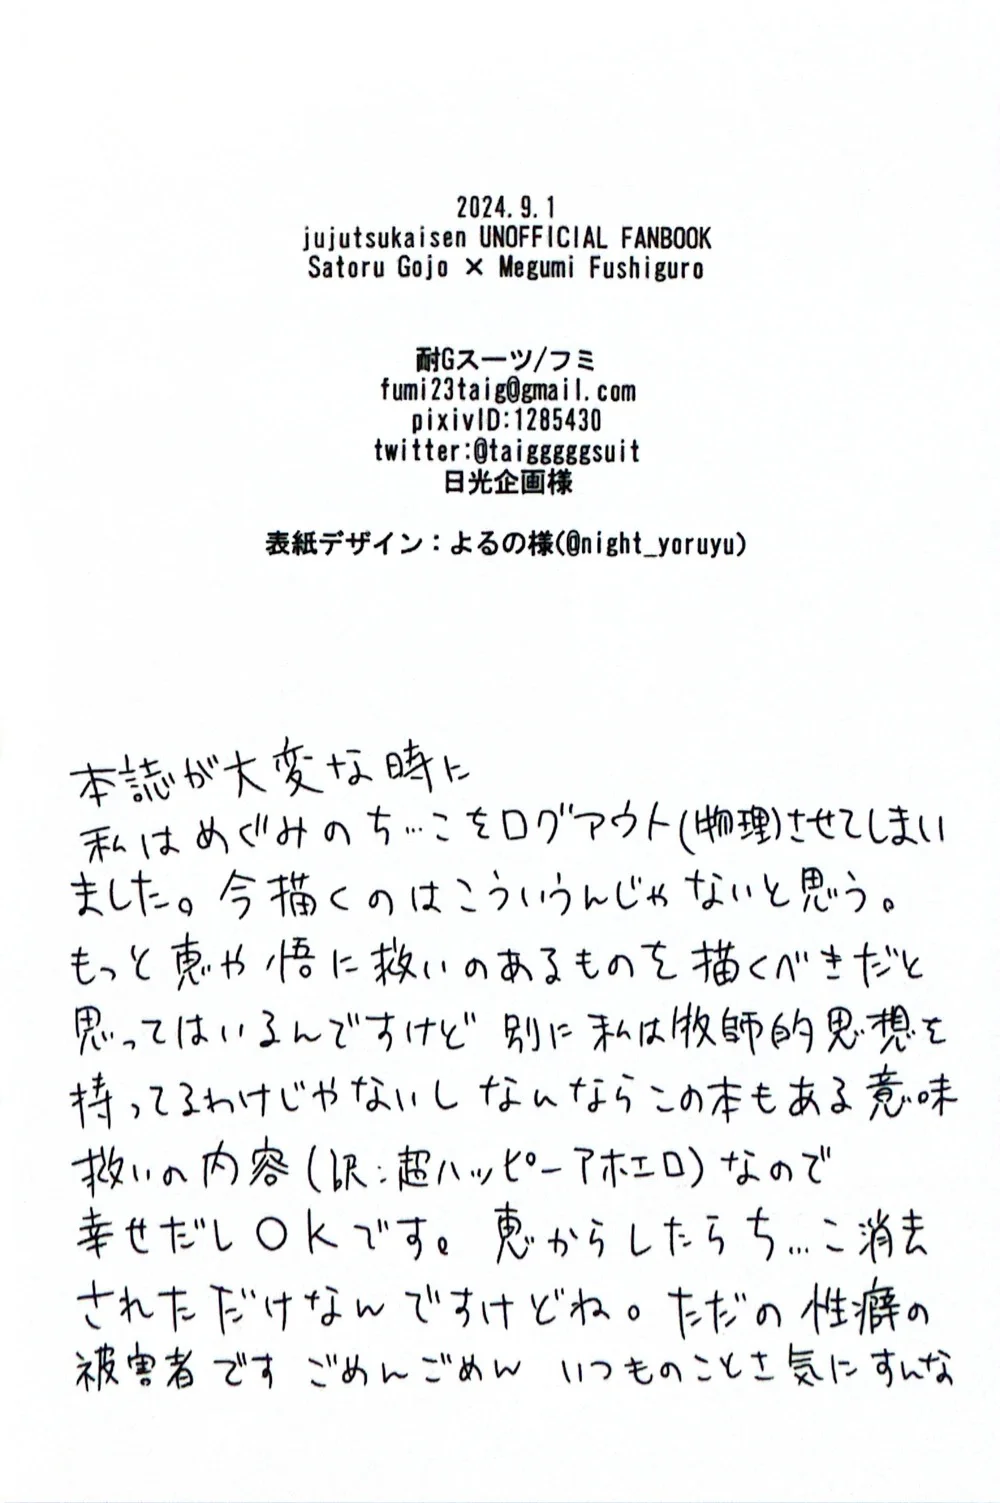 2024.9.1
jujutsukaisen UNOFFICIAL FANBOOK
Satoru Gojo × Megumi Fushiguro
耐Gスーツ/フミ
fumi23taig@gmail.com
pixivID:1285430
twitter:@taigggggsuit
日光企画様
表紙デザイン：よるの様(@night_yoruyu)
本誌が大変な時に
私はめぐみのち…こをログアウト(物理)させてしまい
ました。今描くのはこういうんじゃないと思う。
もっと恵や悟に救いのあるものを描くべきだと
思ってはいるんですけど 別に私は牧師的思想を
持ってるわけじゃないし なんならこの本もある意味
救いの内容(訳:超ハッピーアホエロ)なので
幸せだしOKです。恵からしたらち…こ消去
されただけなんですけどね。ただの性癖の
被害者です ごめんごめん いつものことさ気にすんな